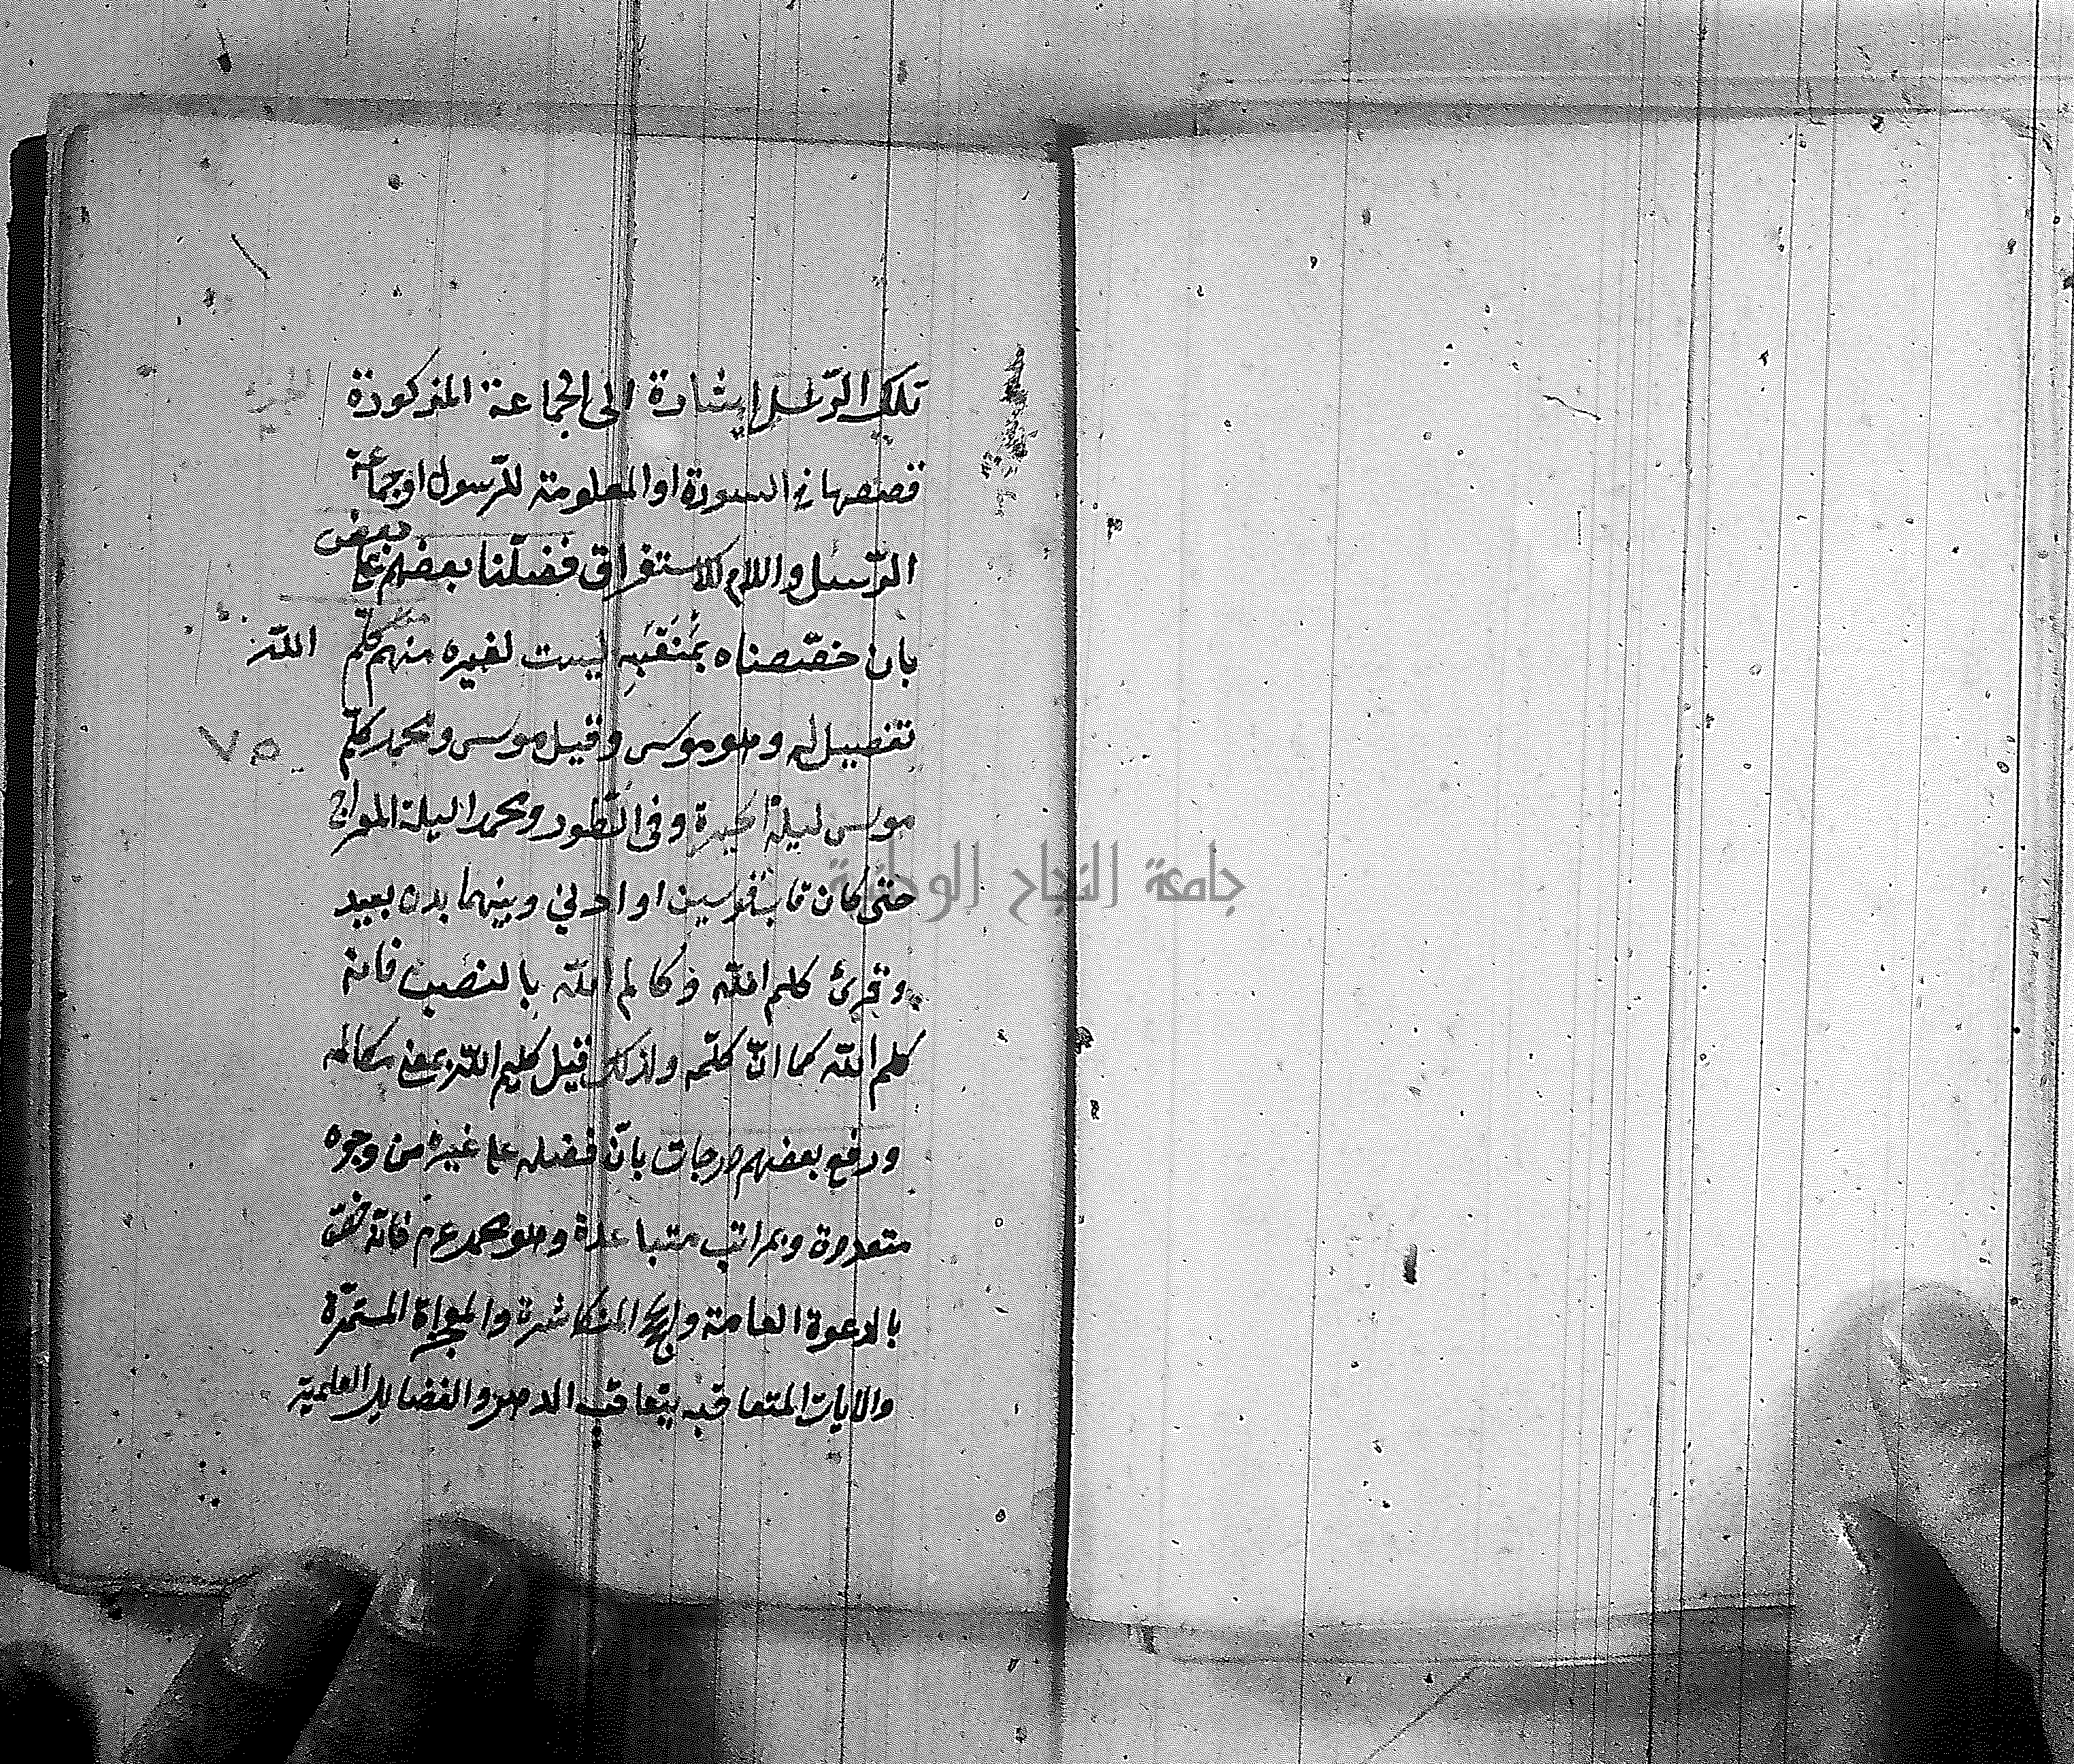 تلك الرّسل إشارة الى الجماعة المذكورة
قصصها في السورة او المعلومة للرّسول او جماعة
الرّسل واللام للاستغراق فضّلنا بعضهم على بعض
بان خصّصناه بمَنقَبةٍ ليست لغيره منهم من كلّم اللّه
تفصيل له وهو موسى وقيل موسى ومحمد كلّم
٧٥
موسى ليلة الحيرة وفى الطّور ومحمدا ليلة المعراج
حتى كان قاب قوسين او ادنى وبينهما بون بعيد
جامعة النجاح الوطنية
وقرئ كلم اللّه وكالم اللّه بالنصب فانه
كلم اللّه كما انّ كلّمه ولذلك قيل كليم اللّه بمعنى مكالمه
ورفع بعضهم درجات بانّ فضله على غيره من وجوه
متعددة وبمراتب متباعدة وهو محمد عم فانّه خصّ
بالدعوة العامة والحجج المتكاثرة والمعجزات المستمرّة
والايات المتعاقبه بتعاقب الدهر والفضايل العلمية